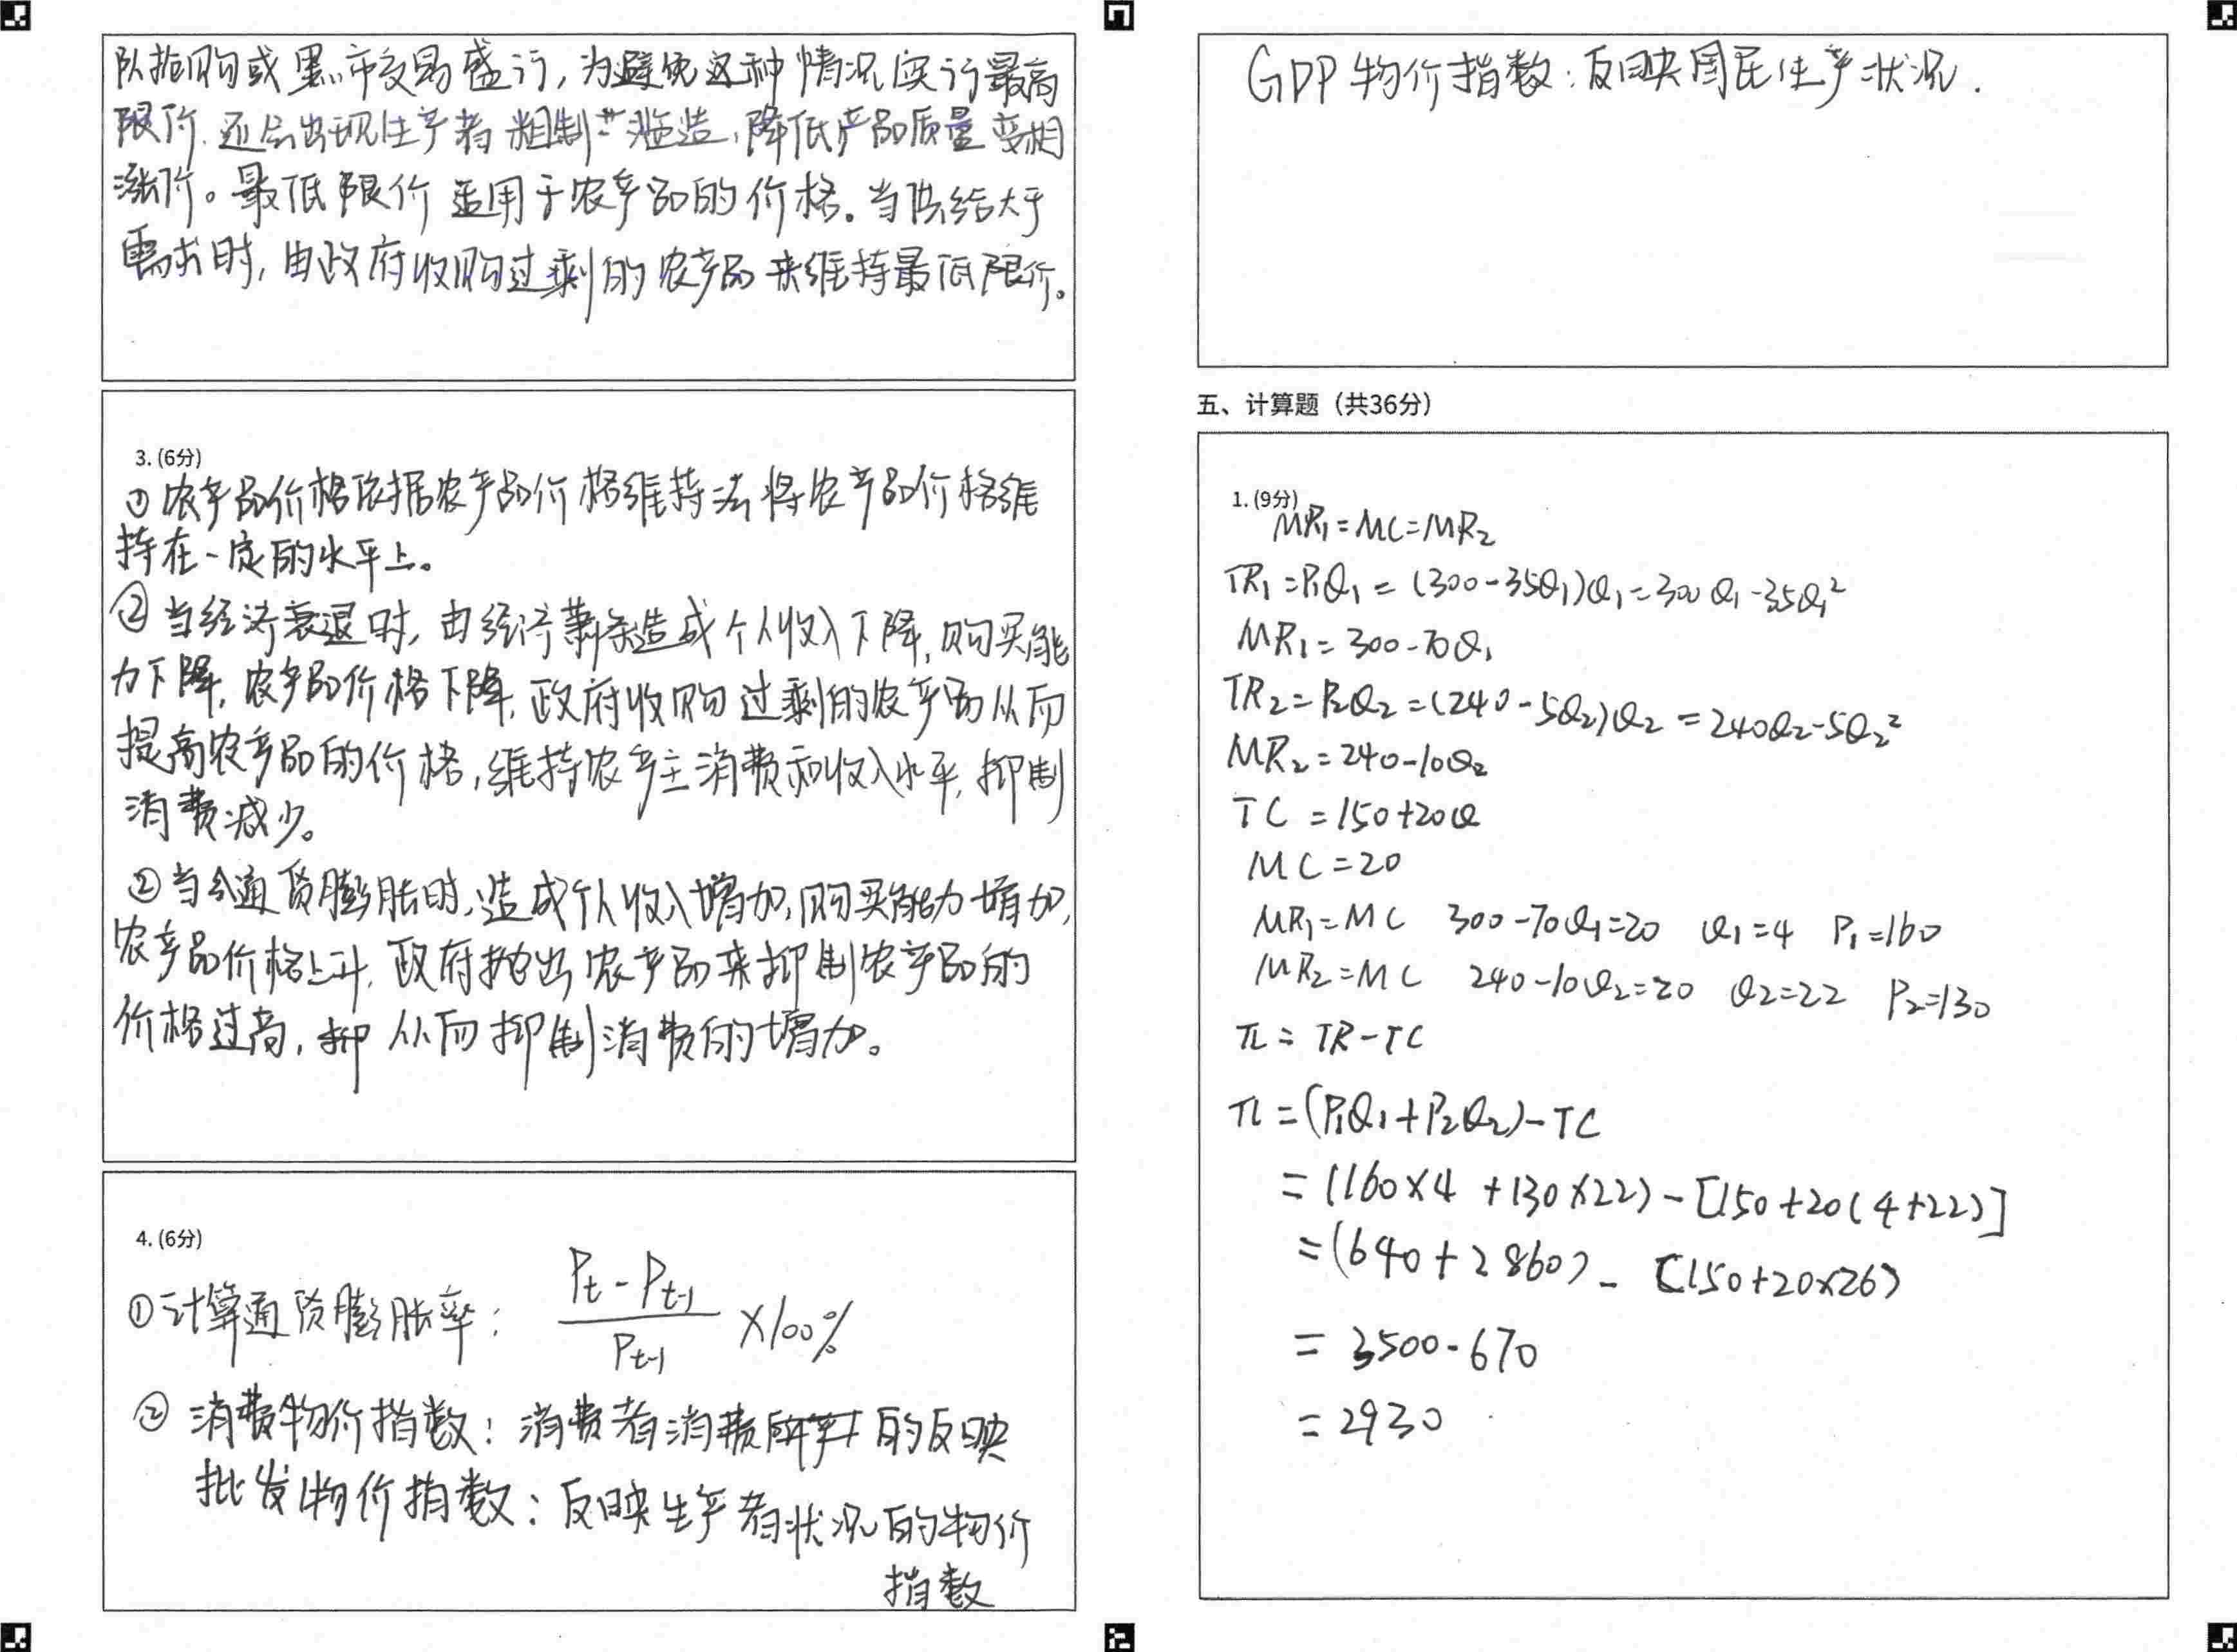 队抢购或黑市交易盛行,为避免这种情况实行最高
限价.还会出现生产者粗制滥造,降低产品质量变相
涨价。最低限价适用于农产品的价格。当供给大于
需求时,由政府收购过剩的农产品来维持最低限价。
3.(6分)
①农产品价格依据农产品价格维持法将农产品价格维
持在一定的水平上。
②当经济衰退时,由经济萧条造成个人收入下降,购买能
力下降,农产品价格下降,政府收购过剩的农产品从而
提高农产品的价格,维持农产主消费和收入水平,抑制
消费减少。
②当通货膨胀时,造成个人收入增加,购买能力增加,
农产品价格上升,政府抛出农产品来抑制农产品的
价格过高,从而抑制消费的增加。
4.(6分)
①计算通货膨胀率: (Pt-Pt-1)/Pt-1 ×100%
②消费物价指数:消费者消费的反映
批发物价指数:反映生产者状况的物价
指数
GDP物价指数:反映国民生产状况.
五、计算题(共36分)
1.(9分)
MR₁=MC=MR₂
TR₁=P₁Q₁=(300-35Q₁)Q₁=300Q₁-35Q₁²
MR₁=300-70Q₁
TR₂=P₂Q₂=(240-5Q₂)Q₂=240Q₂-5Q₂²
MR₂=240-10Q₂
TC=150+20Q
MC=20
MR₁=MC 300-70Q₁=20 Q₁=4 P₁=160
MR₂=MC 240-10Q₂=20 Q₂=22 P₂=130
π=TR-TC
π=(P₁Q₁+P₂Q₂)-TC
=(160×4+130×22)-[150+20(4+22)]
=(640+2860)-[150+20×26)
=3500-670
=2930